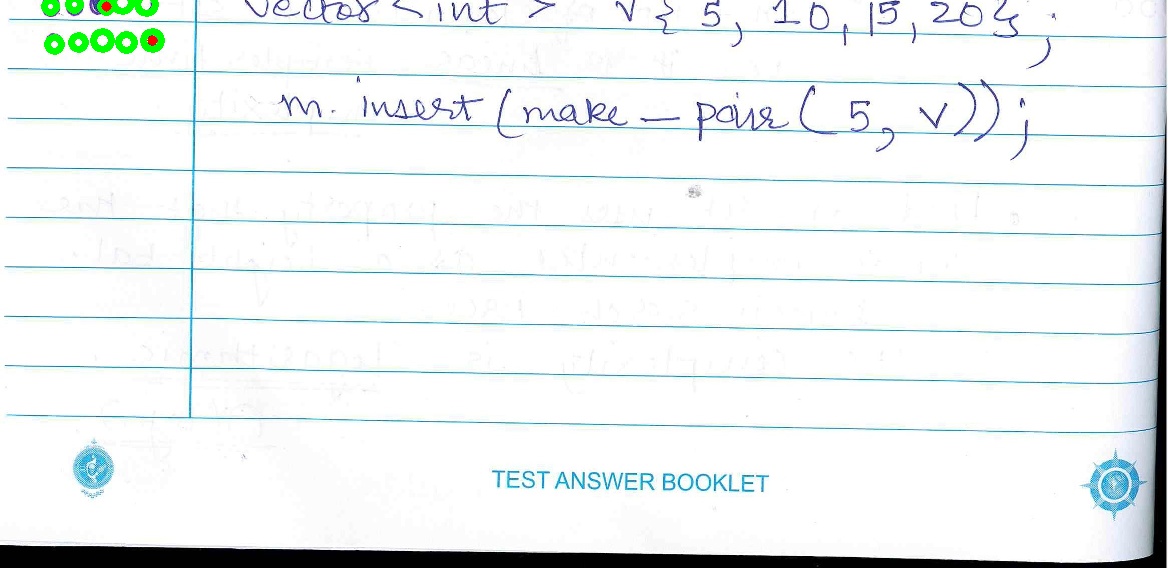 vector <int> v{ 5, 10, 15, 20};
m. insert (make_pair( 5, v));
TEST ANSWER BOOKLET